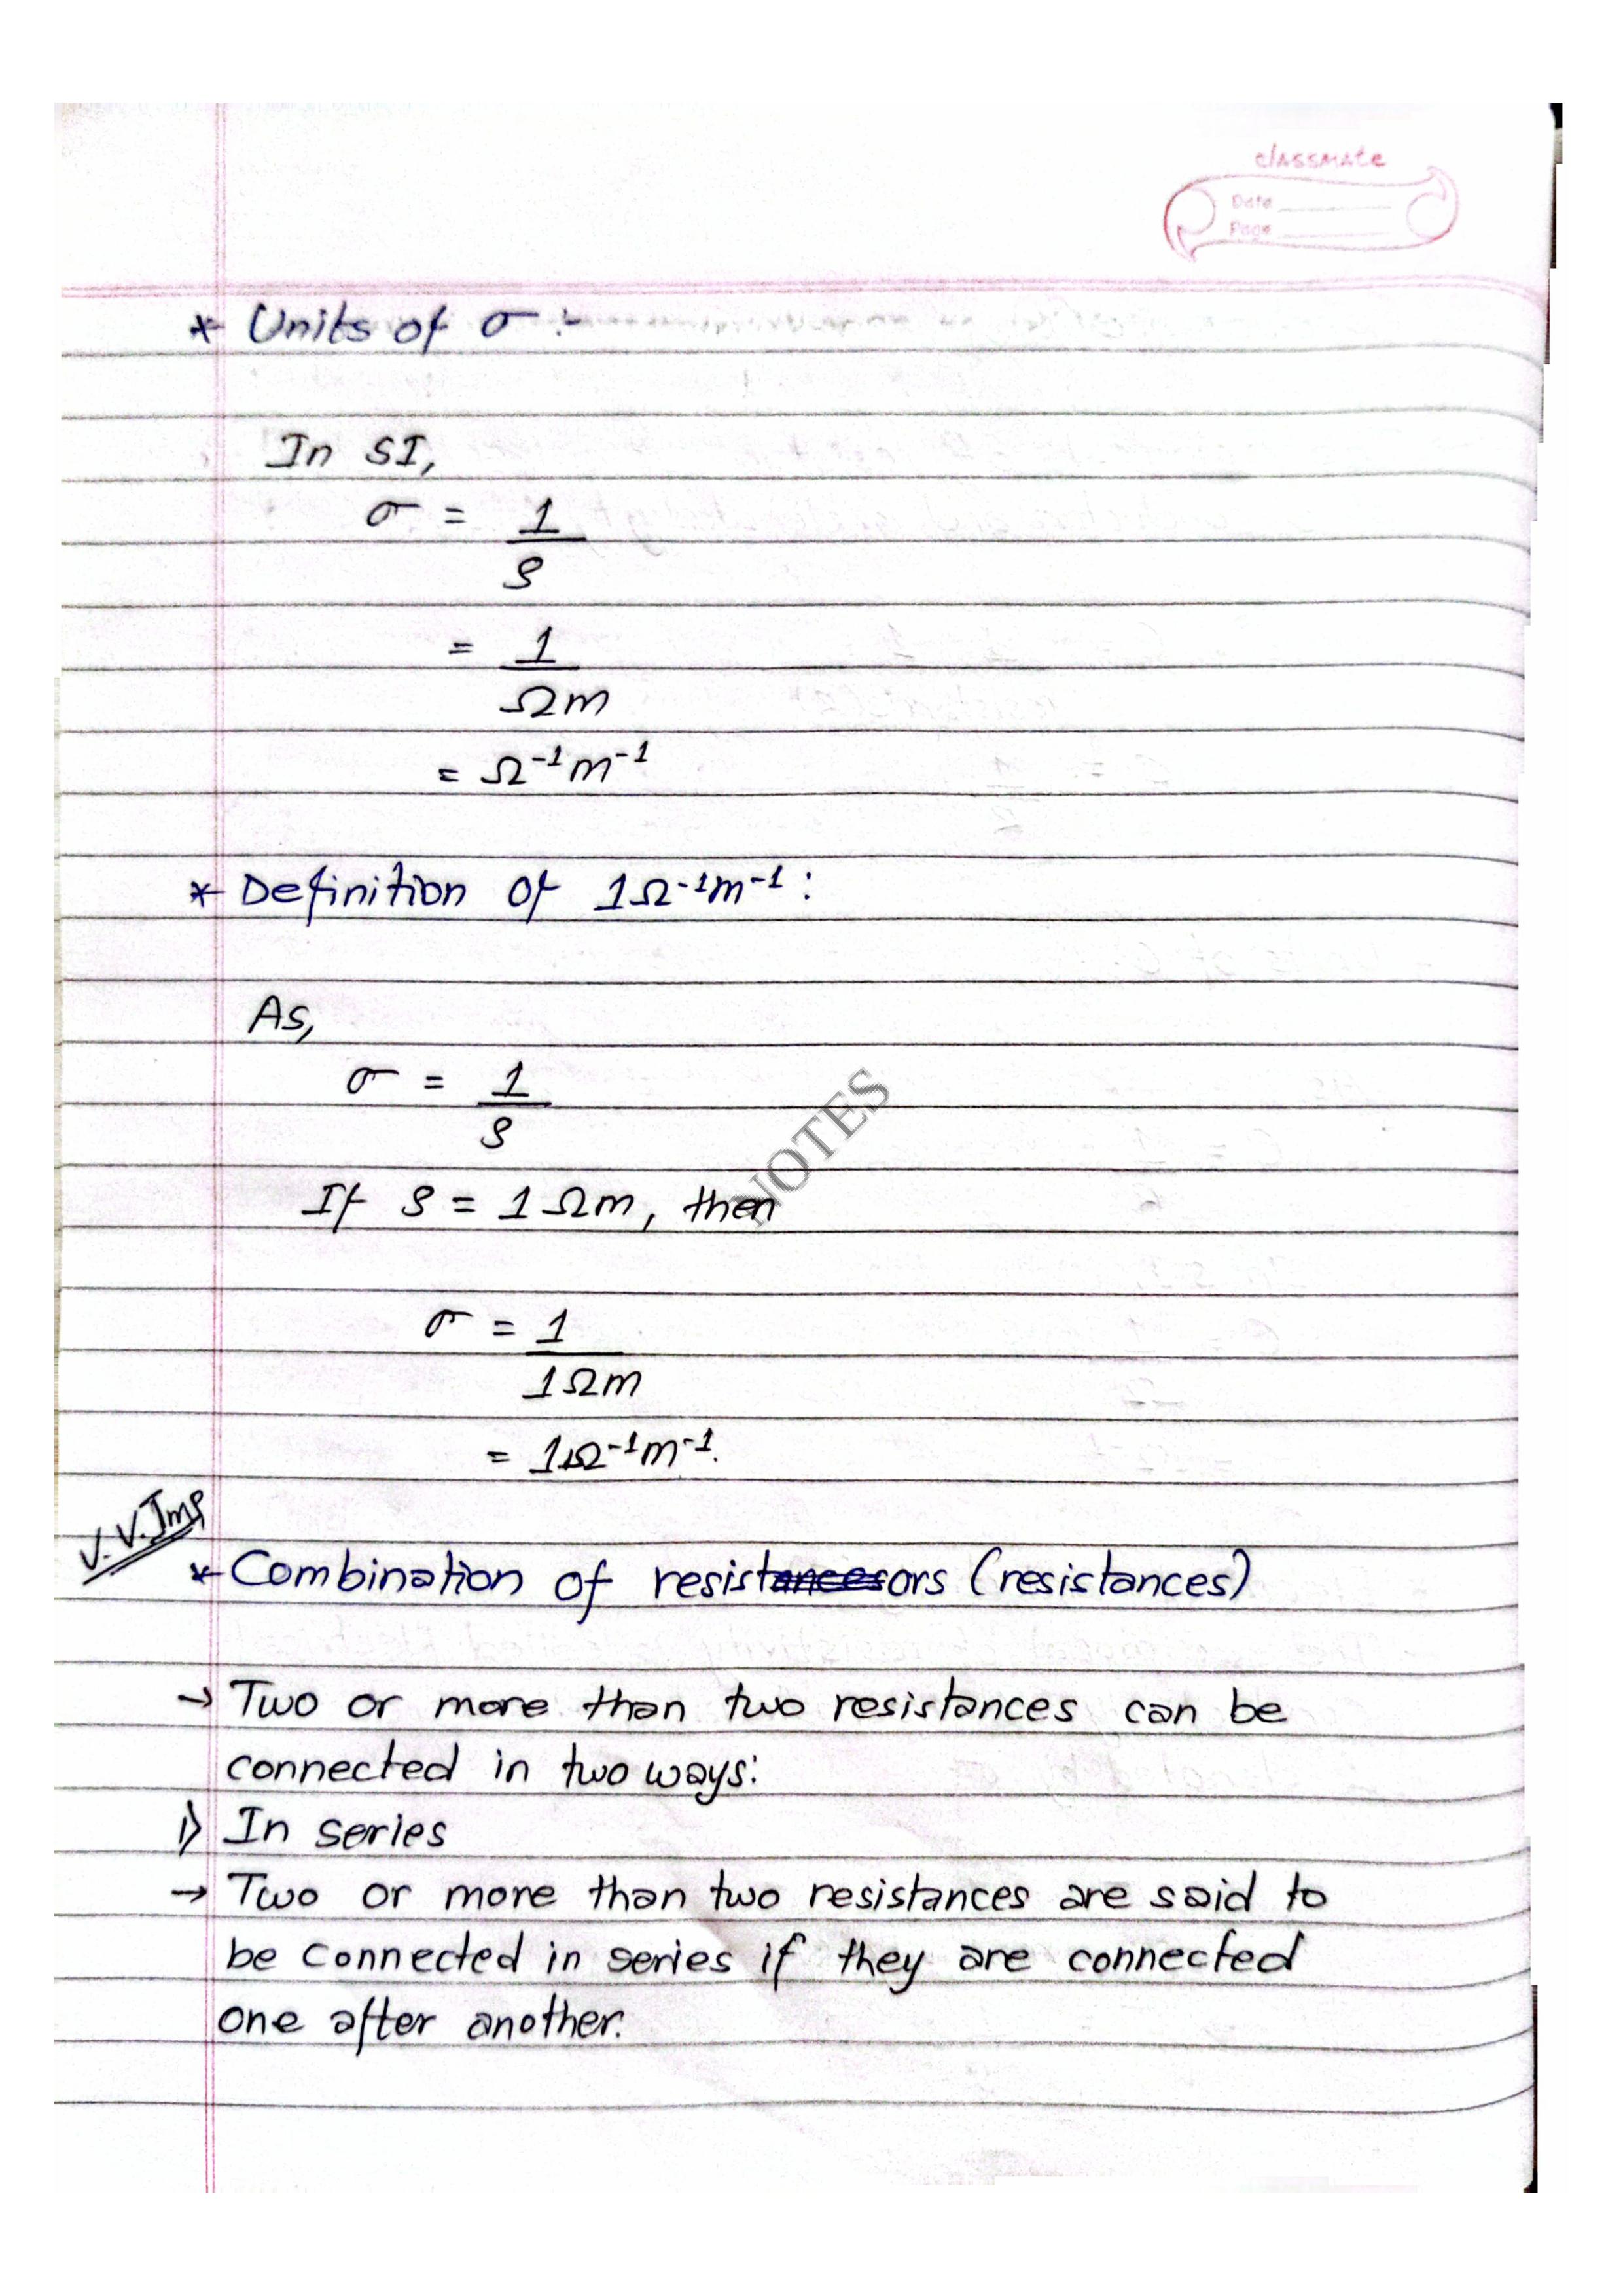 classmate
Date
Page
* Units of σ :-
In SI,
σ = 1
ρ
= 1
Ωm
= Ω⁻¹m⁻¹
* Definition of 1Ω⁻¹m⁻¹ :
As,
σ = 1
ρ
NOTES
If ρ = 1 Ωm, then
σ = 1
1Ωm
= 1Ω⁻¹m⁻¹.
V.V.Imp
* Combination of resistors (resistances)
→ Two or more than two resistances can be
connected in two ways:
i) In series
→ Two or more than two resistances are said to
be connected in series if they are connected
one after another.